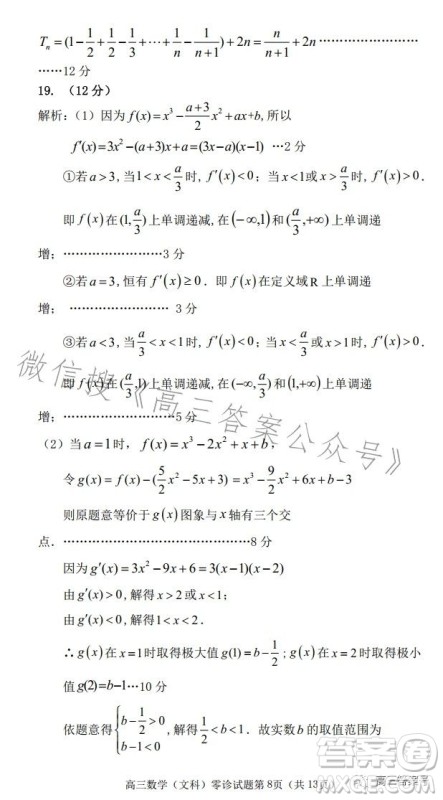 Tₙ=(1-1/2+1/2-1/3+⋯+1/n-1/(n+1))+2n=n/(n+1)+2n……………………
……12分
19. （12分）
解析：（1）因为f(x)=x³-(a+3)/2 x²+ax+b,所以
f′(x)=3x²-(a+3)x+a=(3x-a)(x-1) …2分
①若a>3,当1<x<a/3时，f′(x)<0；当x<1或x>a/3时，f′(x)>0.
即f(x)在(1,a/3)上单调递减,在(-∞,1)和(a/3,+∞)上单调递
增；……………………3分
②若a=3,恒有f′(x)≥0．即f(x)在定义域R上单调递
增； …………………… 3分
③若a<3,当a/3<x<1时,f′(x)<0；当x<a/3或x>1时,f′(x)>0．
即f(x)在(a/3,1)上单调递减,在(-∞,a/3)和(1,+∞)上单调递
增；……………………………5分
（2）当a=1时，f(x)=x³-2x²+x+b,
令g(x)=f(x)-(5/2 x²-5x+3)=x³-9/2 x²+6x+b-3
则原题意等价于g(x)图象与x轴有三个交
点．……………………………………………8分
因为g′(x)=3x²-9x+6=3(x-1)(x-2)
由g′(x)>0,解得x>2或x<1；
由g′(x)<0,解得1<x<2．
∴g(x)在x=1时取得极大值g(1)=b-1/2；g(x)在x=2时取得极小
值g(2)=b-1…10分
依题意得{b-1/2>0 b-1<0,解得1/2<b<1．故实数b的取值范围为
高三数学（文科）零诊试题第8页（共13
微信搜《高三答案公众号》